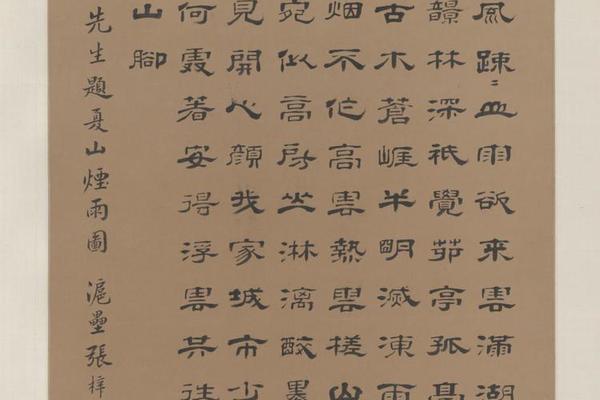 風疎〻雨欲來雲滿湖
韻林深祇覺茆亭孤高
古木蒼崖半明滅凍雨
烟不作高雲熱雲槎山
宛似高房坐淋漓醉墨
見開心顏我家城市少
何處著安得浮雲共往
山腳
先生題夏山煙雨圖 滬壘張梓